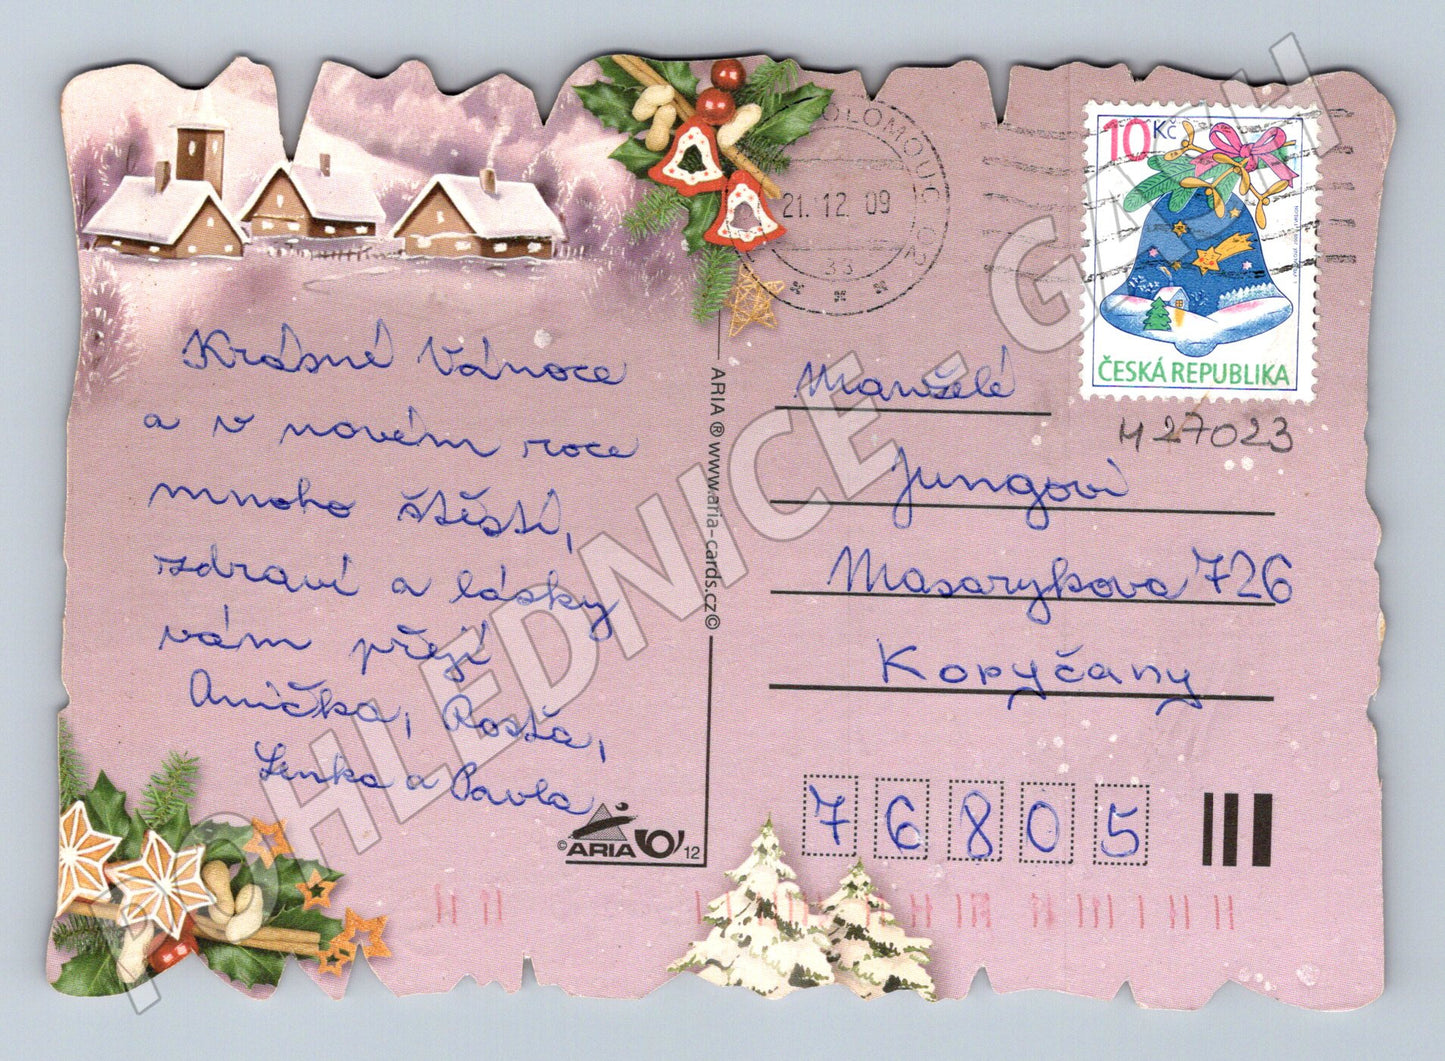 Krásné Vánoce
a v novém roce
mnoho štěstí,
zdraví a lásky
vám přejí
Anička, Rosťa,
Lenka a Pavla
ARIA ® www.aria-cards.cz ©
© ARIA 12
OLOMOUC 02
21. 12. 09
33
10 Kč
ČESKÁ REPUBLIKA
M27023
Manželé
Jungovi
Masarykova 726
Kopyčany
76805
POHLEDNICE - GASH